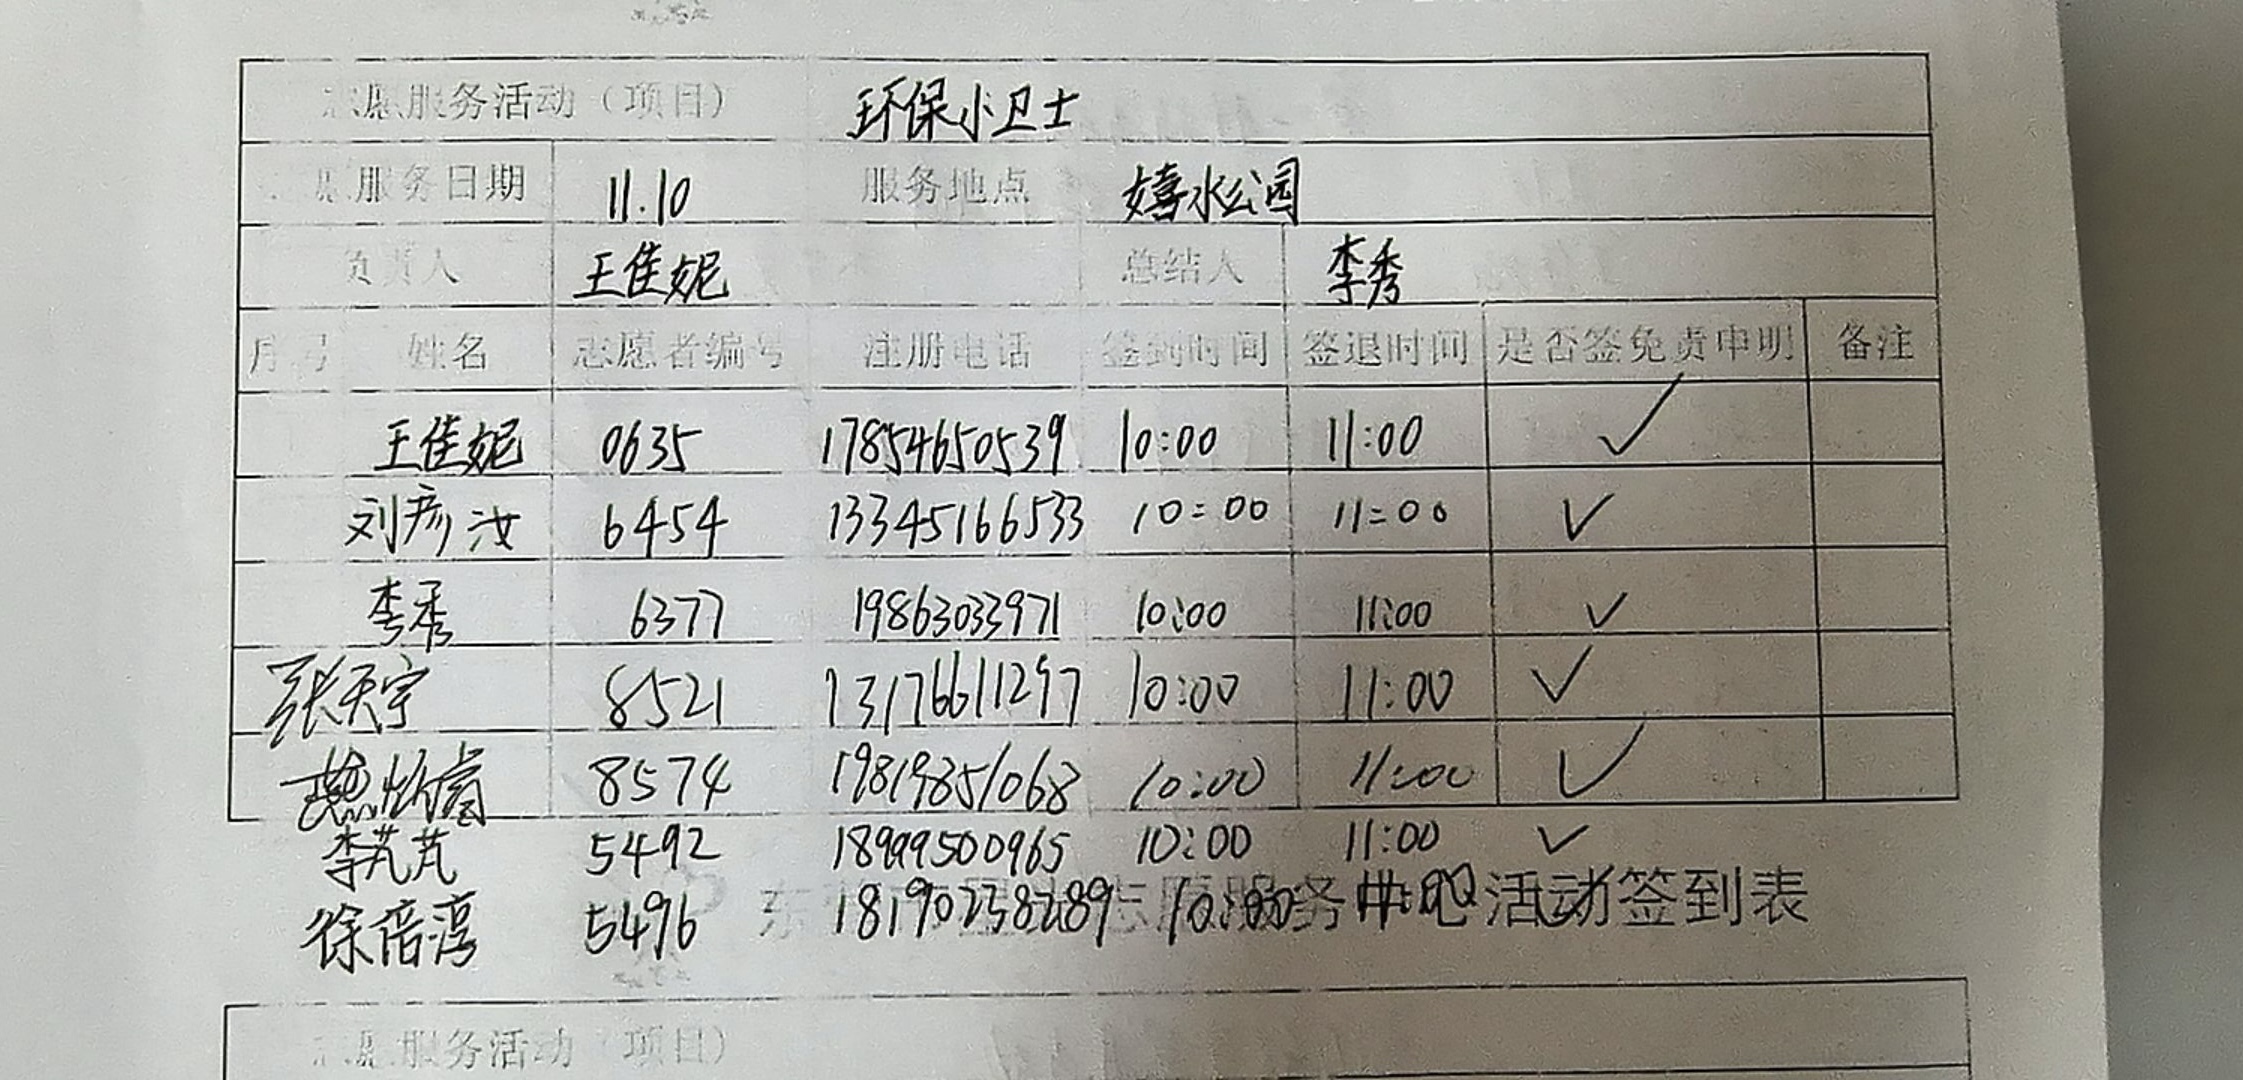 志愿服务活动（项目） 环保小卫士
志愿服务日期 11.10 服务地点 嬉水公园
负责人 王佳妮 总结人 李秀
序号 姓名 志愿者编号 注册电话 签到时间 签退时间 是否签免责申明 备注
王佳妮 0635 17854650539 10:00 11:00 ✓
刘彦汝 6454 13345166533 10:00 11:00 ✓
李秀 6377 19863033971 10:00 11:00 ✓
张天宇 8521 13176611297 10:00 11:00 ✓
8574 19819851068 10:00 11:00 ✓
李芃芃 5492 18999500965 10:00 11:00 ✓
徐蓓淳 5496 18190238289 10:00 11:00 ✓
东 志愿服务中心活动签到表
志愿服务活动（项目）